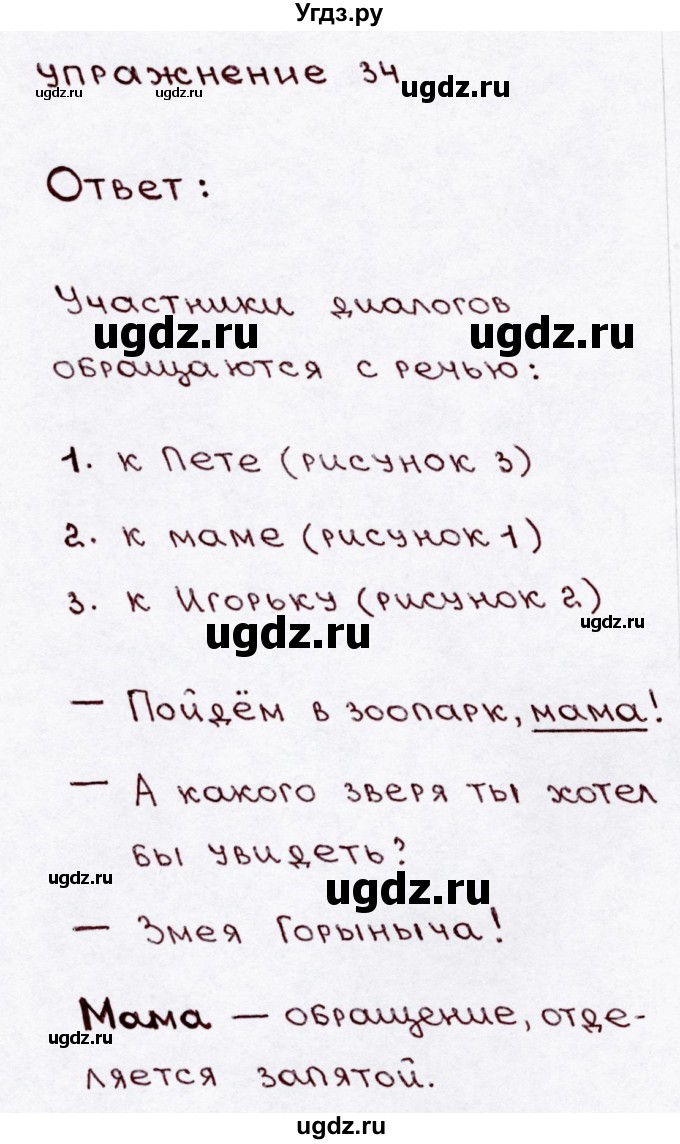 Угдз.ру
упражнение 34
ugdz.ru ugdz.ru ugdz.ru
Ответ:
Участники диалогов
ugdz.ru ugdz.ru
обращаются с речью:
1. к Пете (рисунок 3)
2. к маме (рисунок 1)
3. к Игорьку (рисунок 2)
ugdz.ru ugdz.ru
— Пойдём в зоопарк, мама!
— А какого зверя ты хотел
бы увидеть?
ugdz.ru ugdz.ru
— Змея Горыныча!
Мама — обращение, отде-
ugdz.ru
ляется запятой.
ugdz.ru